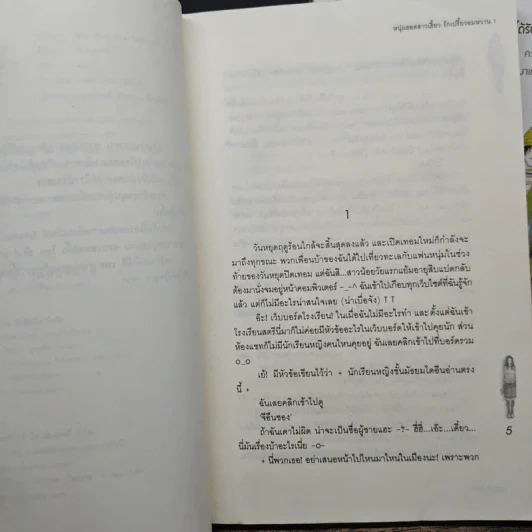 หนุ่มฮอตสาวเฮี้ยว รักเปรี้ยวอมหวาน 1
1
วันหยุดฤดูร้อนใกล้จะสิ้นสุดลงแล้ว และเปิดเทอมใหม่ก็กำลังจะ
มาถึงทุกขณะ พวกเพื่อนบ้าของฉันได้ไปเที่ยวทะเลกับแฟนหนุ่มในช่วง
ท้ายของวันหยุดปิดเทอม แต่ฉันสิ...สาวน้อยวัยแรกแย้มอายุสิบแปดกลับ
ต้องมานั่งจมอยู่หน้าคอมพิวเตอร์ -_-^ ฉันเข้าไปเกือบทุกเว็บไซต์ที่ฉันรู้จัก
แล้ว แต่ก็ไม่มีอะไรน่าสนใจเลย (น่าเบื่อจัง) T T
อ๊ะ! เว็บบอร์ดโรงเรียน! ในเมื่อฉันไม่มีอะไรทำ และตั้งแต่ฉันเข้า
โรงเรียนสตรีนี่มาก็ไม่ค่อยมีหัวข้ออะไรในเว็บบอร์ดให้เข้าไปคุยนัก ส่วน
ห้องแชทก็ไม่มีนักเรียนหญิงคนไหนคุยอยู่ ฉันเลยคลิกเข้าไปที่บอร์ดรวม
o_o
เย้! มีหัวข้อเขียนไว้ว่า + นักเรียนหญิงชั้นมัธยมโดอึนอ่านตรง
นี้ +
ฉันเลยคลิกเข้าไปดู
'จีอึนซอง'
ถ้าฉันเดาไม่ผิด น่าจะเป็นชื่อผู้ชายแฮะ -?- ฮี่ฮี่...เอ๊ะ...เดี๋ยว...
นี่มันเรื่องบ้าอะไรเนี่ย -o-
+ นี่พวกเธอ! อย่าเสนอหน้าไปไหนมาไหนในเมืองนะ! เพราะพวก
5